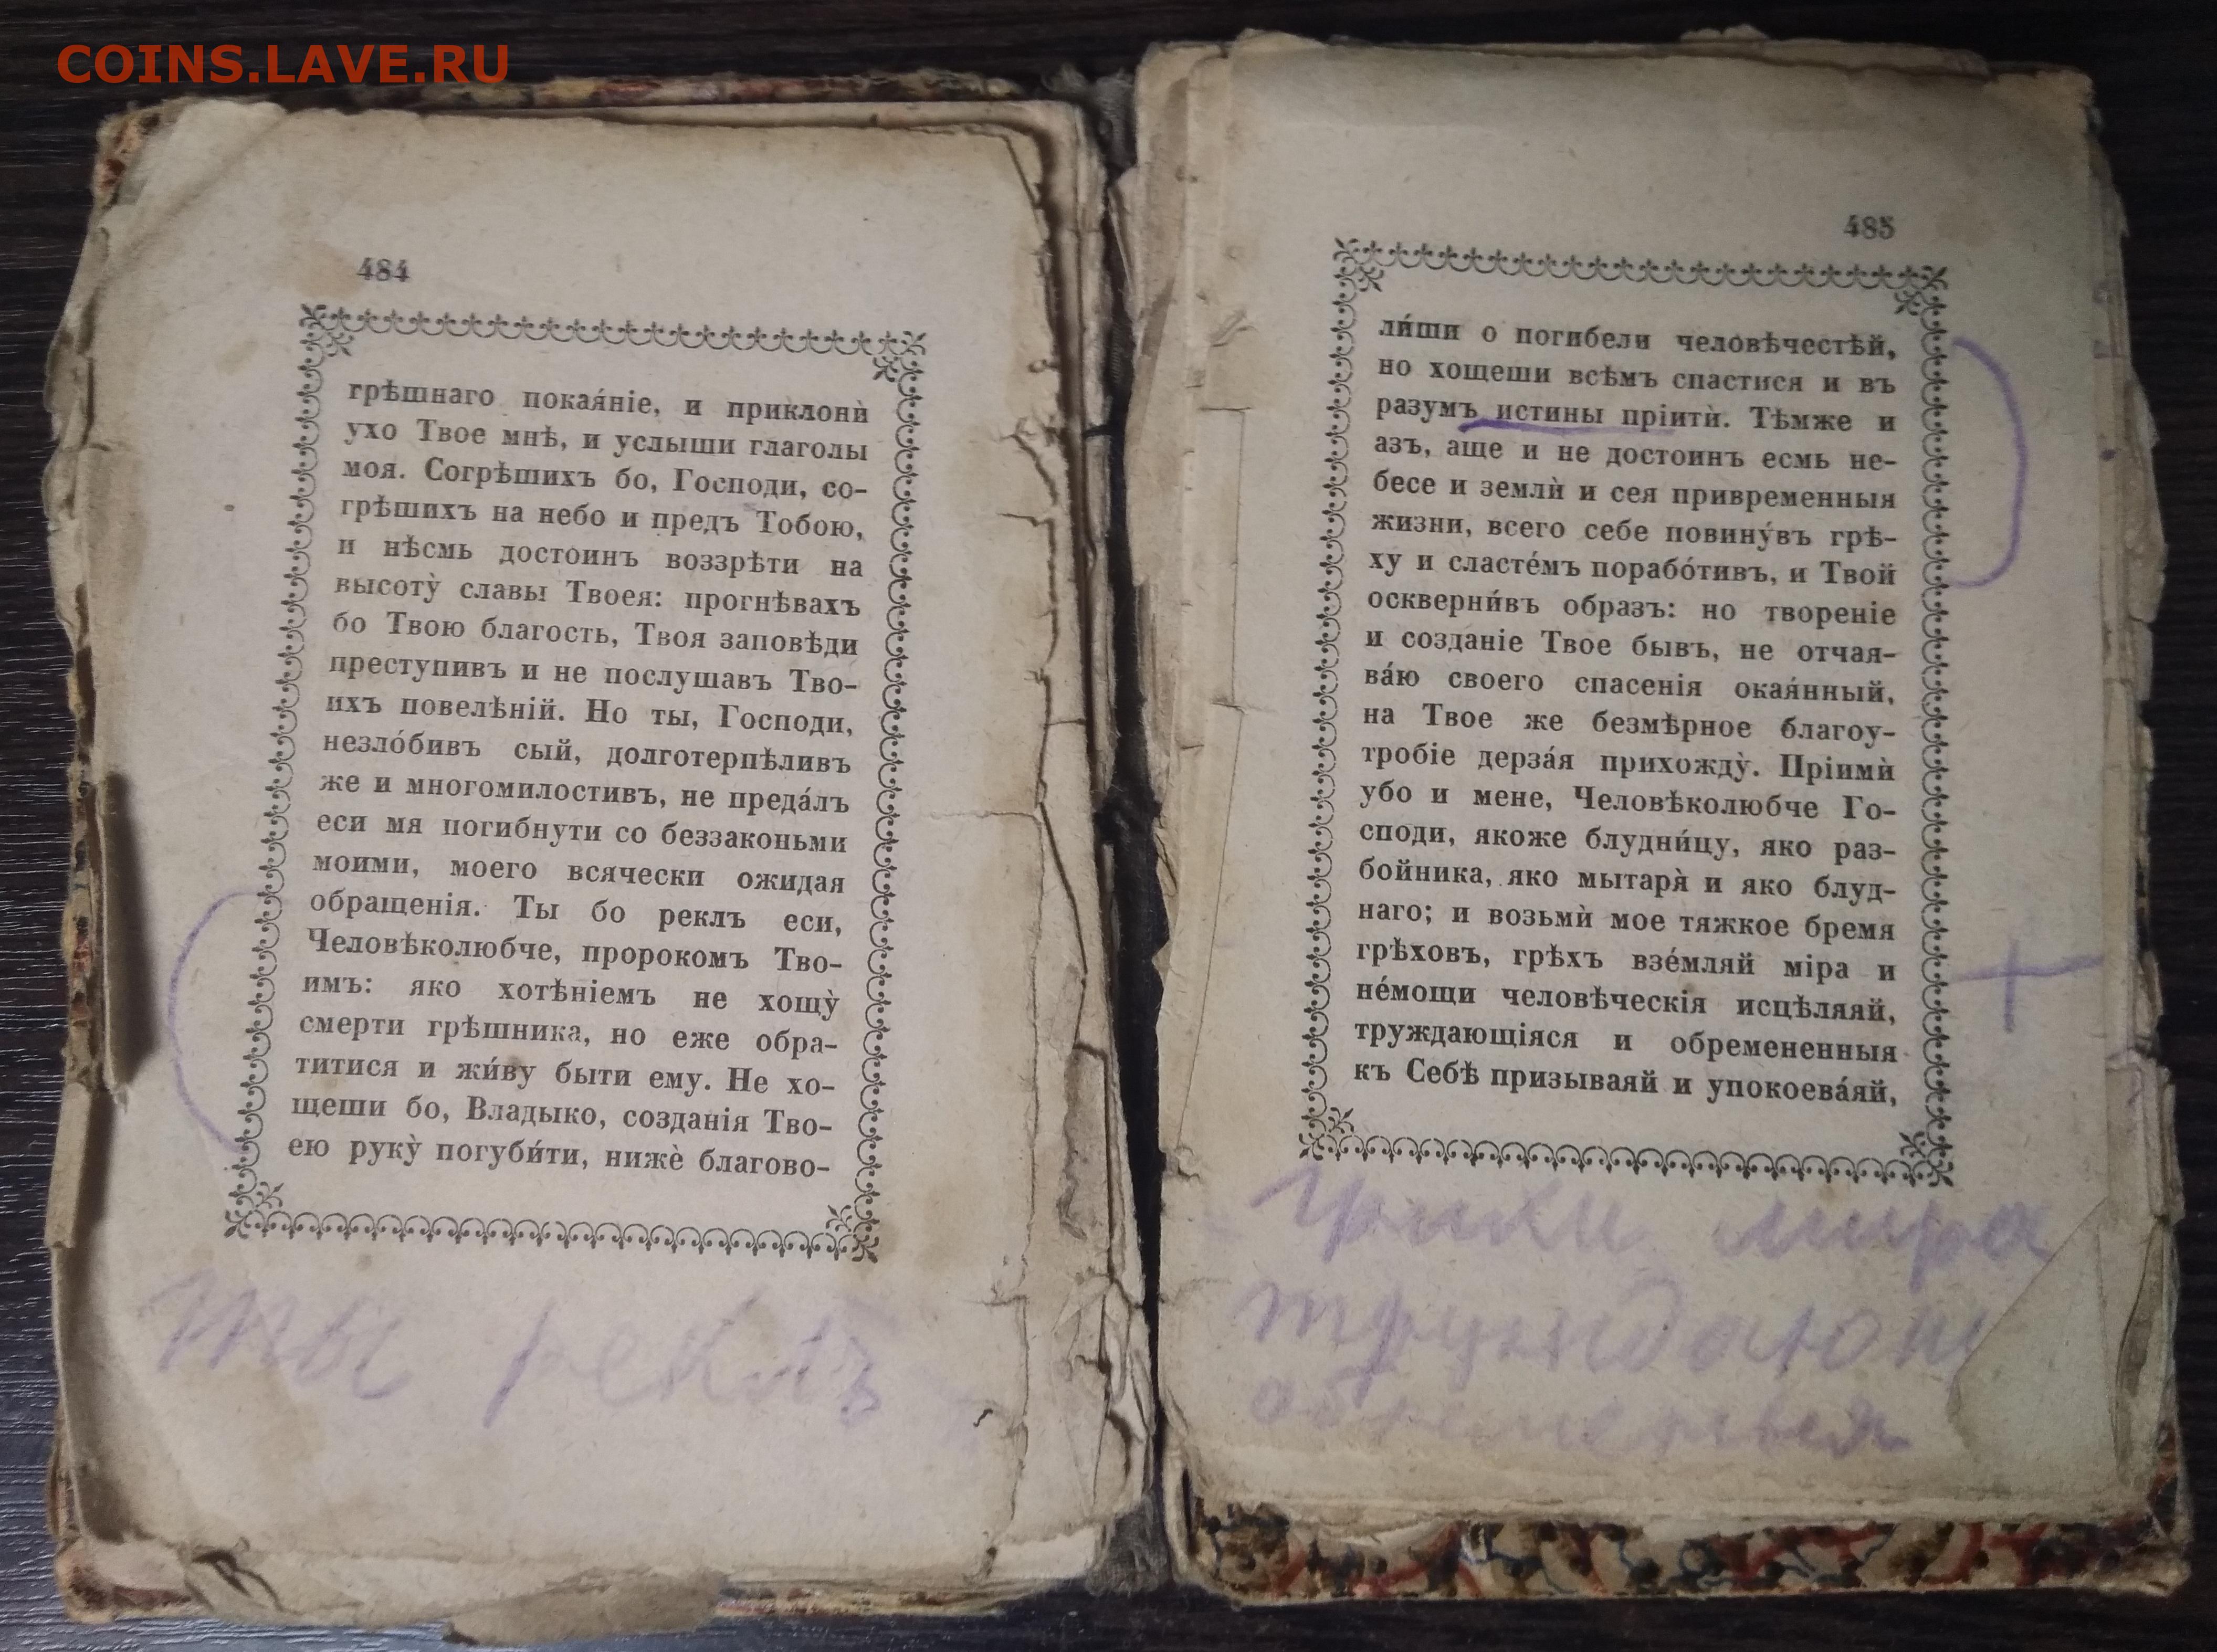 COINS.LAVE.RU
484
грѣшнаго покая́ніе, и приклони̇̀
ухо Твое мнѣ, и услыши глаголы
моя. Согрѣшихъ бо, Господи, со-
грѣшихъ на небо и предъ Тобою,
и нѣсмь достоинъ воззрѣти на
высоту̀ славы Твоея: прогнѣвахъ
бо Твою благость, Твоя заповѣди
преступивъ и не послушавъ Тво-
ихъ повелѣній. Но ты, Господи,
незло́бивъ сый, долготерпѣливъ
же и многомилостивъ, не преда́лъ
еси мя погибнути со беззаконьми
моими, моего всячески ожидая
обращенія. Ты бо реклъ еси,
Человѣколюбче, пророкомъ Тво-
имъ: яко хотѣніемъ не хощу̀
смерти грѣшника, но еже обра-
титися и жи́ву быти ему. Не хо-
щеши бо, Владыко, созданія Тво-
ею руку̀ погуби́ти, нижѐ благово-
ты реклъ
485
ли́ши о погибели человѣчестѣй,
но хощеши всѣмъ спастися и въ
разумъ истины пріитѝ. Тѣмже и
азъ, аще и не достоинъ есмь не-
бесе и землѝ и сея привременныя
жизни, всего себе повину́въ грѣ-
ху и сласте́мъ порабо́тивъ, и Твой
оскверни́въ образъ: но твореніе
и созданіе Твое бывъ, не отчая-
ва́ю своего спасенія окая́нный,
на Твое же безмѣрное благоу-
тробіе дерза́я прихожду̀. Пріимѝ
убо и мене, Человѣколюбче Го-
споди, якоже блудни́цу, яко раз-
бойника, яко мытаря̀ и яко блуд-
наго; и возьмѝ мое тяжкое бремя
грѣховъ, грѣхъ взе́мляй міра и
не́мощи человѣческія исцѣляяй,
труждающіяся и обремененныя
къ Себѣ призываяй и упокоева́яй,
мира
труждающ